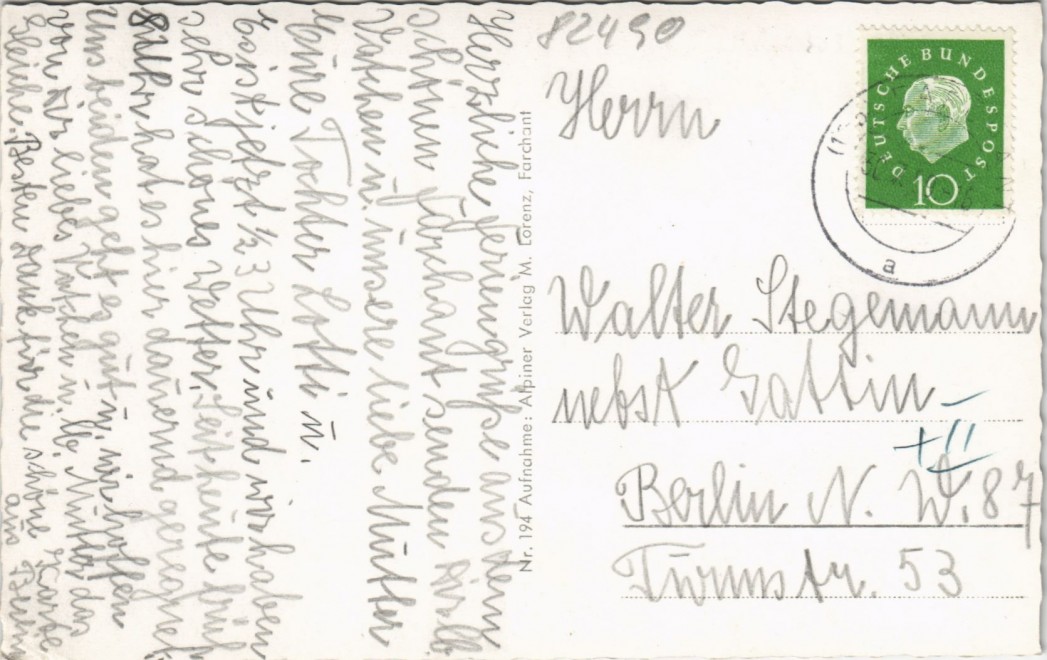 Herzliche Feriengrüße aus dem
schönen Farchant senden Dir lb.
Vatchen u. unsere liebe Mutter
Eure Tochter Lotti u.
Es ist jetzt ½ 3 Uhr und wir haben
sehr schönes Wetter. Seit heute früh
8 Uhr hat es hier dauernd geregnet
Uns beiden geht es gut u. wir hoffen
von Dir liebes Vatchen u. lb. Mutter das
Gleiche. Besten Dank für die schöne Karte
aus
Nr. 194 Aufnahme: Alpiner Verlag M. Lorenz, Farchant
82490
Herrn
DEUTSCHE BUNDESPOST
10
a
Walter Stegemann
nebst Gattin
Berlin N. W. 87
Turmstr. 53